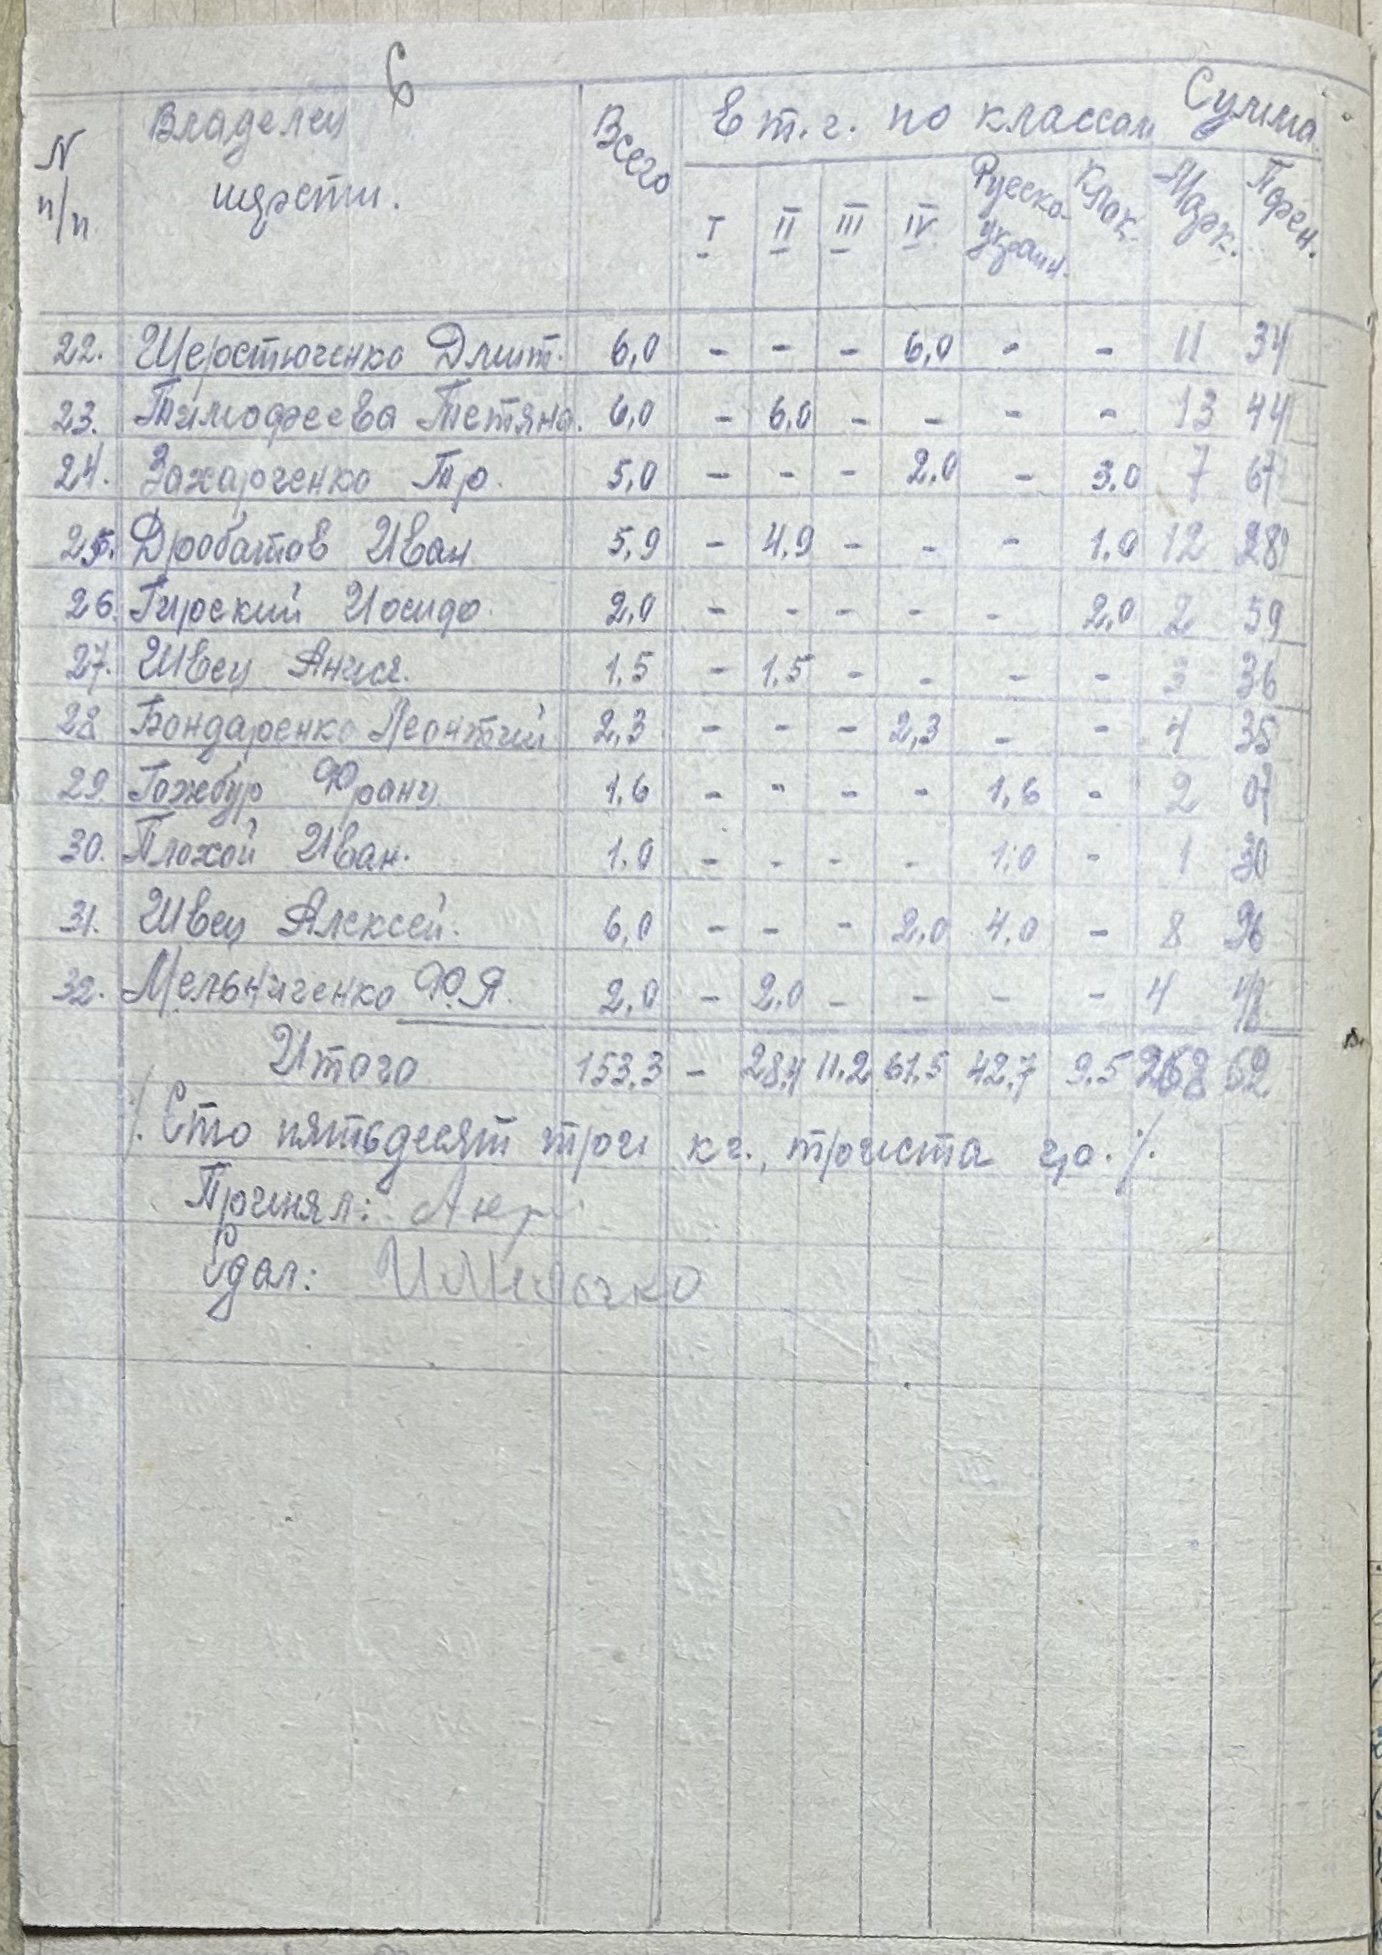 6
N п/п Владелец шерсти. Всего В т. ч. по классам Сумма
I II III IV Русско-украин. Клок. Марк. Пфен.
22. Шерстюченко Дмит. 6,0 - - - 6,0 - - 11 34
23. Тимофеева Тетяна. 6,0 - 6,0 - - - - 13 44
24. Захарченко Тр. 5,0 - - - 2,0 - 3,0 7 67
25. Дробатов Иван 5,9 - 4,9 - - - 1,0 12 28
26. Гирский Иосиф. 2,0 - - - - - 2,0 2 59
27. Швец Анися. 1,5 - 1,5 - - - - 3 36
28 Бондаренко Леонтий 2,3 - - - 2,3 - - 4 35
29. Гожбур Франц 1,6 - - - - 1,6 - 2 07
30. Плохой Иван. 1,0 - - - - 1,0 - 1 30
31. Швец Алексей. 6,0 - - - 2,0 4,0 - 8 96
32. Мельниченко Ф.Я. 2,0 - 2,0 - - - - 4 48
Итого 153,3 - 28,4 11,2 61,5 42,7 9,5 268 62
⁒ Сто пятьдесят три кг., триста гр. ⁒
Принял:
Сдал: